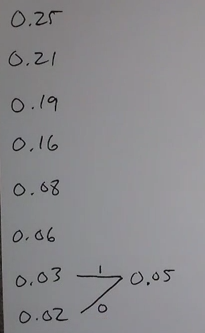 0.25
0.21
0.19
0.16
0.08
0.06
0.03 1 0.05
0.02 0